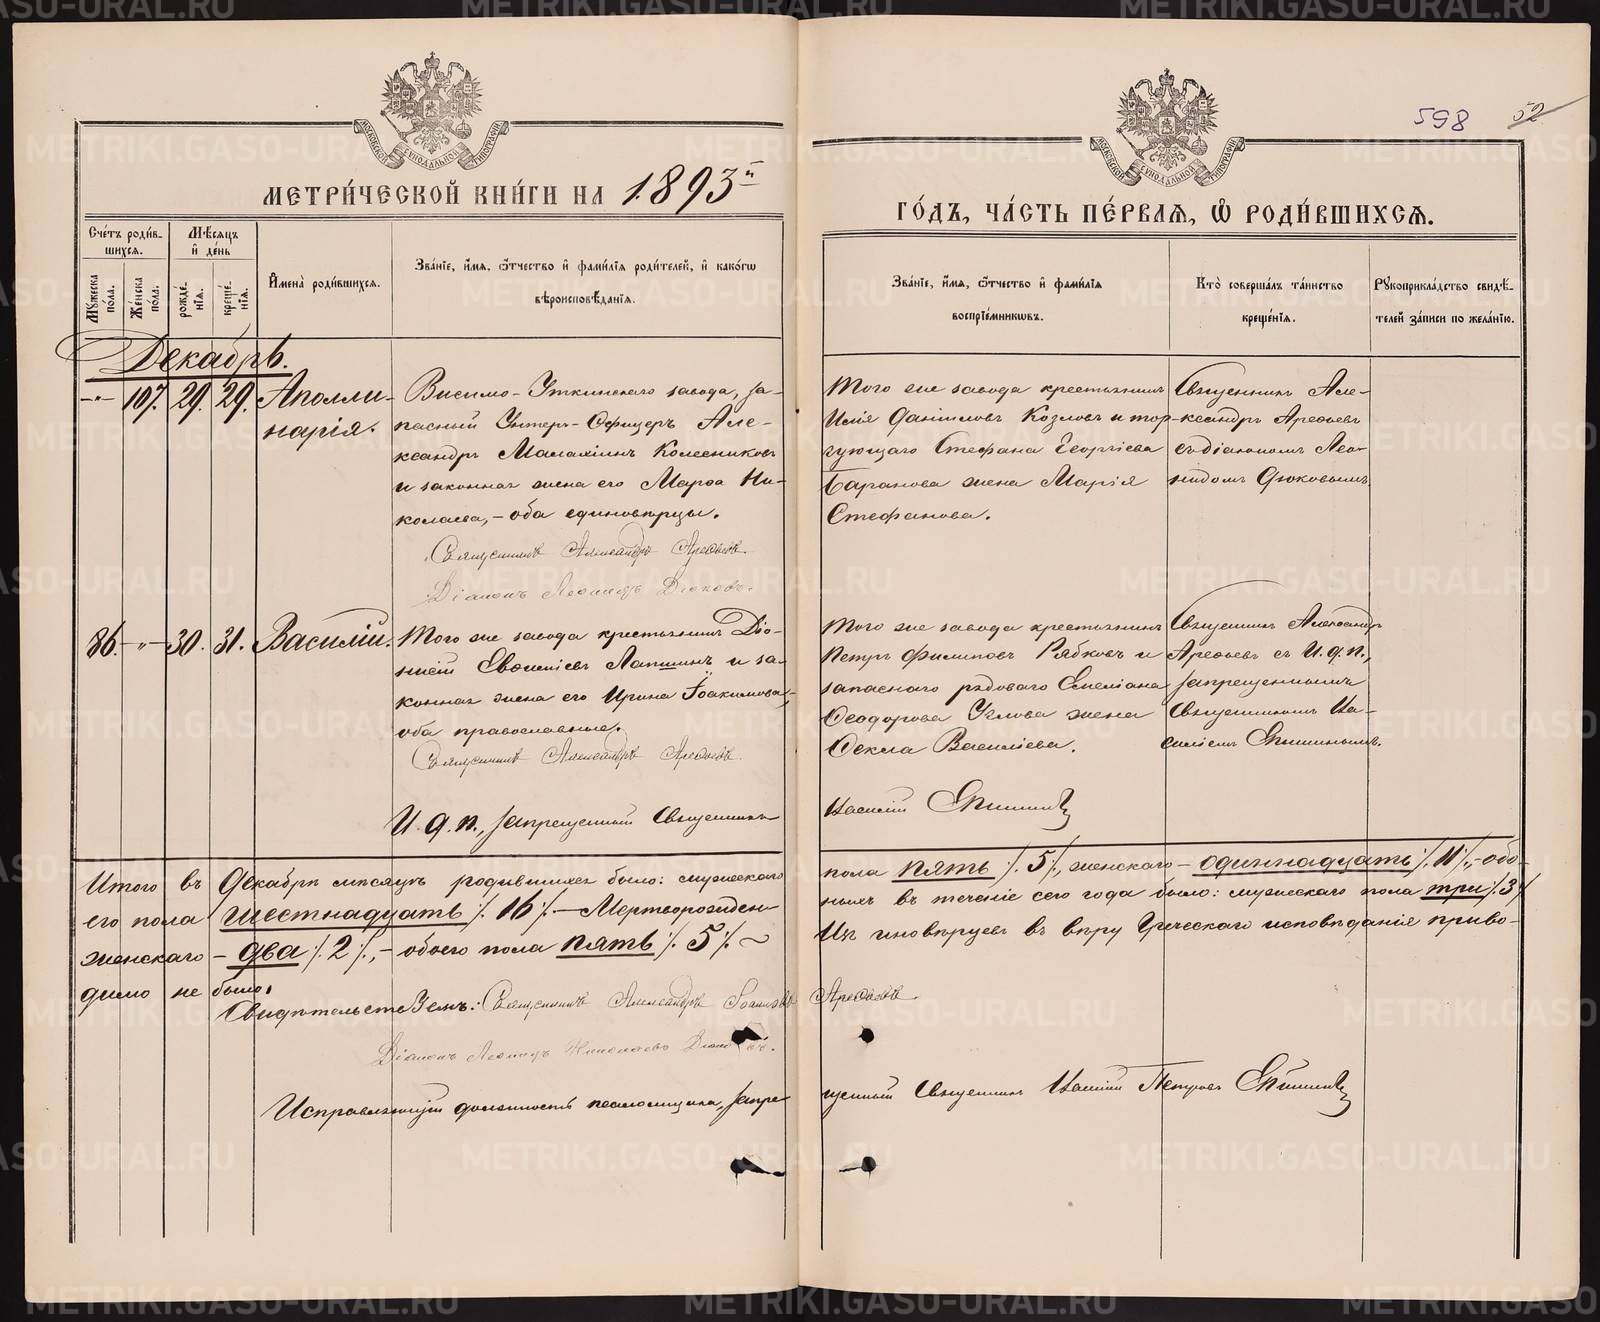 МЕТРИ́ЧЕСКОЙ КНИ́ГИ НА 1893й
ГО́ДЪ, ЧА́СТЬ ПЕ́РВАѦ, Ѡ҆ РОДИ́ВШИХСѦ.
598 52
МОСКОВСКОЙ СѴНОДАЛЬНОЙ ТИПОГРАФІИ
МОСКОВСКОЙ СѴНОДАЛЬНОЙ ТИПОГРАФІИ
Сче́тъ роди́в-
шихсѧ.
Мꙋжеска по́ла.
Же́нска по́ла.
Мѣ́сѧцъ и҆ де́нь
рожде́нїѧ.
креще́нїѧ.
И҆мена̀ роди́вшихсѧ.
Зва́нїе, и҆́мѧ, ѻ҆́тчество и҆ фами́лїѧ роди́телей, и҆ како́гѡ
вѣроисповѣ́данїѧ.
Зва́нїе, и҆́мѧ, ѻ҆́тчество и҆ фами́лїѧ
воспрїе́мникѡвъ.
Кто̀ соверша́лъ та́инство
креще́нїѧ.
Рꙋкоприкла́дство свидѣ́-
телей за́писи по жела́нїю.
Декабрь.
-"- 107. 29. 29. Аполли-
нарія.
Висимо-Уткинскаго завода, за-
пасный Унтеръ-Офицеръ Але-
ксандръ Малахіинъ Колесниковъ
и законная жена его Марѳа Ни-
колаева, - оба единовѣрцы.
Священникъ Александръ Арефьевъ.
Діаконъ Леонидъ Дюковъ.
Того же завода крестьянинъ
Илія Даніиловъ Козловъ и тор-
гующаго Стефана Георгіева
Баранова жена Марія
Стефанова.
Священникъ Але-
ксандръ Арефьевъ
съ діакономъ Лео-
нидомъ Дюковымъ.
86. -"- 30. 31. Василій.
Того же завода крестьянинъ Діо-
нисій Евѳиміевъ Лапшинъ и за-
конная жена его Ирина Іоакимова,
оба православные.
Священникъ Александръ Арефьевъ.
И. д. п., запрещенный Священникъ
Того же завода крестьянинъ
Петръ Филиповъ Рябковъ и
запаснаго рядоваго Емеліана
Ѳеодорова Углова жена
Ѳекла Васильева.
Священникъ Александръ
Арефьевъ съ И. д. п.,
запрещеннымъ
Священникомъ Ва-
силіемъ Епишинымъ.
Василій Епишинъ
Итого въ Декабрѣ мѣсяцѣ родившихся было: мужескаго
пола пять /. 5 /., женскаго - одиннадцать /. 11 /., - обо-
его пола шестнадцать /. 16 /. - Мертворожден-
ныхъ въ теченіе сего года было: мужескаго пола три /. 3 /.
женскаго - два /. 2 /., - обоего пола пять /. 5 /. ~
Изъ иновѣрцевъ въ вѣру Греческаго исповѣданія приво-
димо не было.
Свидѣтельствуемъ: Священникъ Александръ Арефьевъ
Діаконъ Леонидъ Николаевъ Дюковъ.
Исправляющій должность псаломщика, запре-
щенный Священникъ Василій Петровъ Епишинъ
METRIKI.GASO-URAL.RU